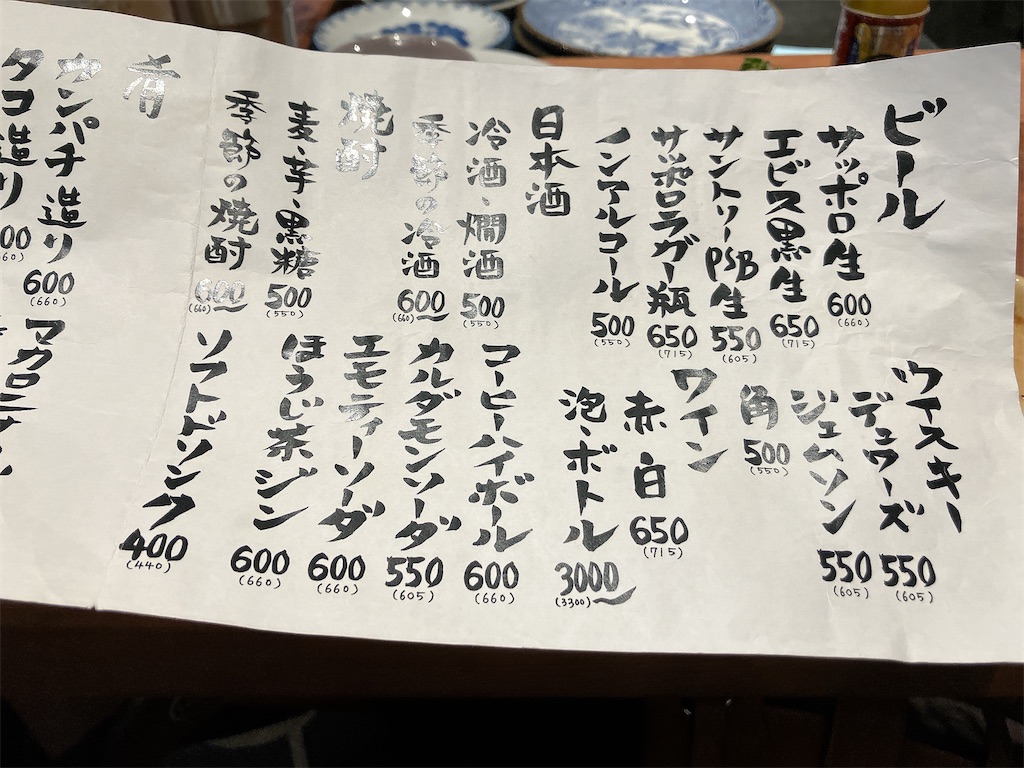 ビール
サッポロ生 600 (660)
エビス黒生 650 (715)
サントリーPSB生 550 (605)
サッポロラガー瓶 650 (715)
ノンアルコール 500 (550)
日本酒
冷酒・燗酒 500 (550)
季節の冷酒 600〜 (660)
焼酎
麦・芋・黒糖 500 (550)
季節の焼酎 600〜 (660)
ウイスキー
デュワーズ 550 (605)
ジェムソン 550 (605)
角 500 (550)
ワイン
赤 白 650 (715)
泡・ボトル 3000〜 (3300)
コーヒーハイボール 600 (660)
カルダモンソーダ 550 (605)
エモティーソーダ 600 (660)
ほうじ茶ジン 600 (660)
ソフトドリンク 400 (440)
肴
カンパチ造り 600 (660)
タコ造り
マカロニサラ